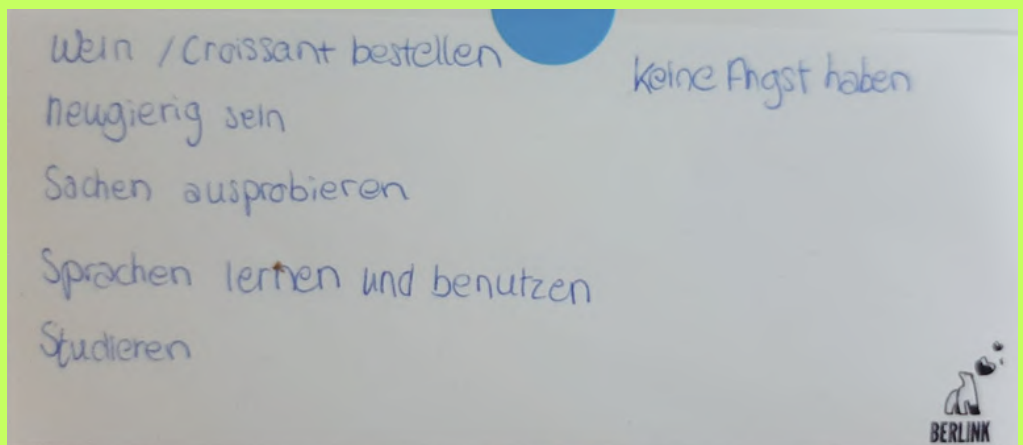 Wein / Croissant bestellen
neugierig sein
Sachen ausprobieren
Sprachen lernen und benutzen
Studieren
Keine Angst haben
BERLINK